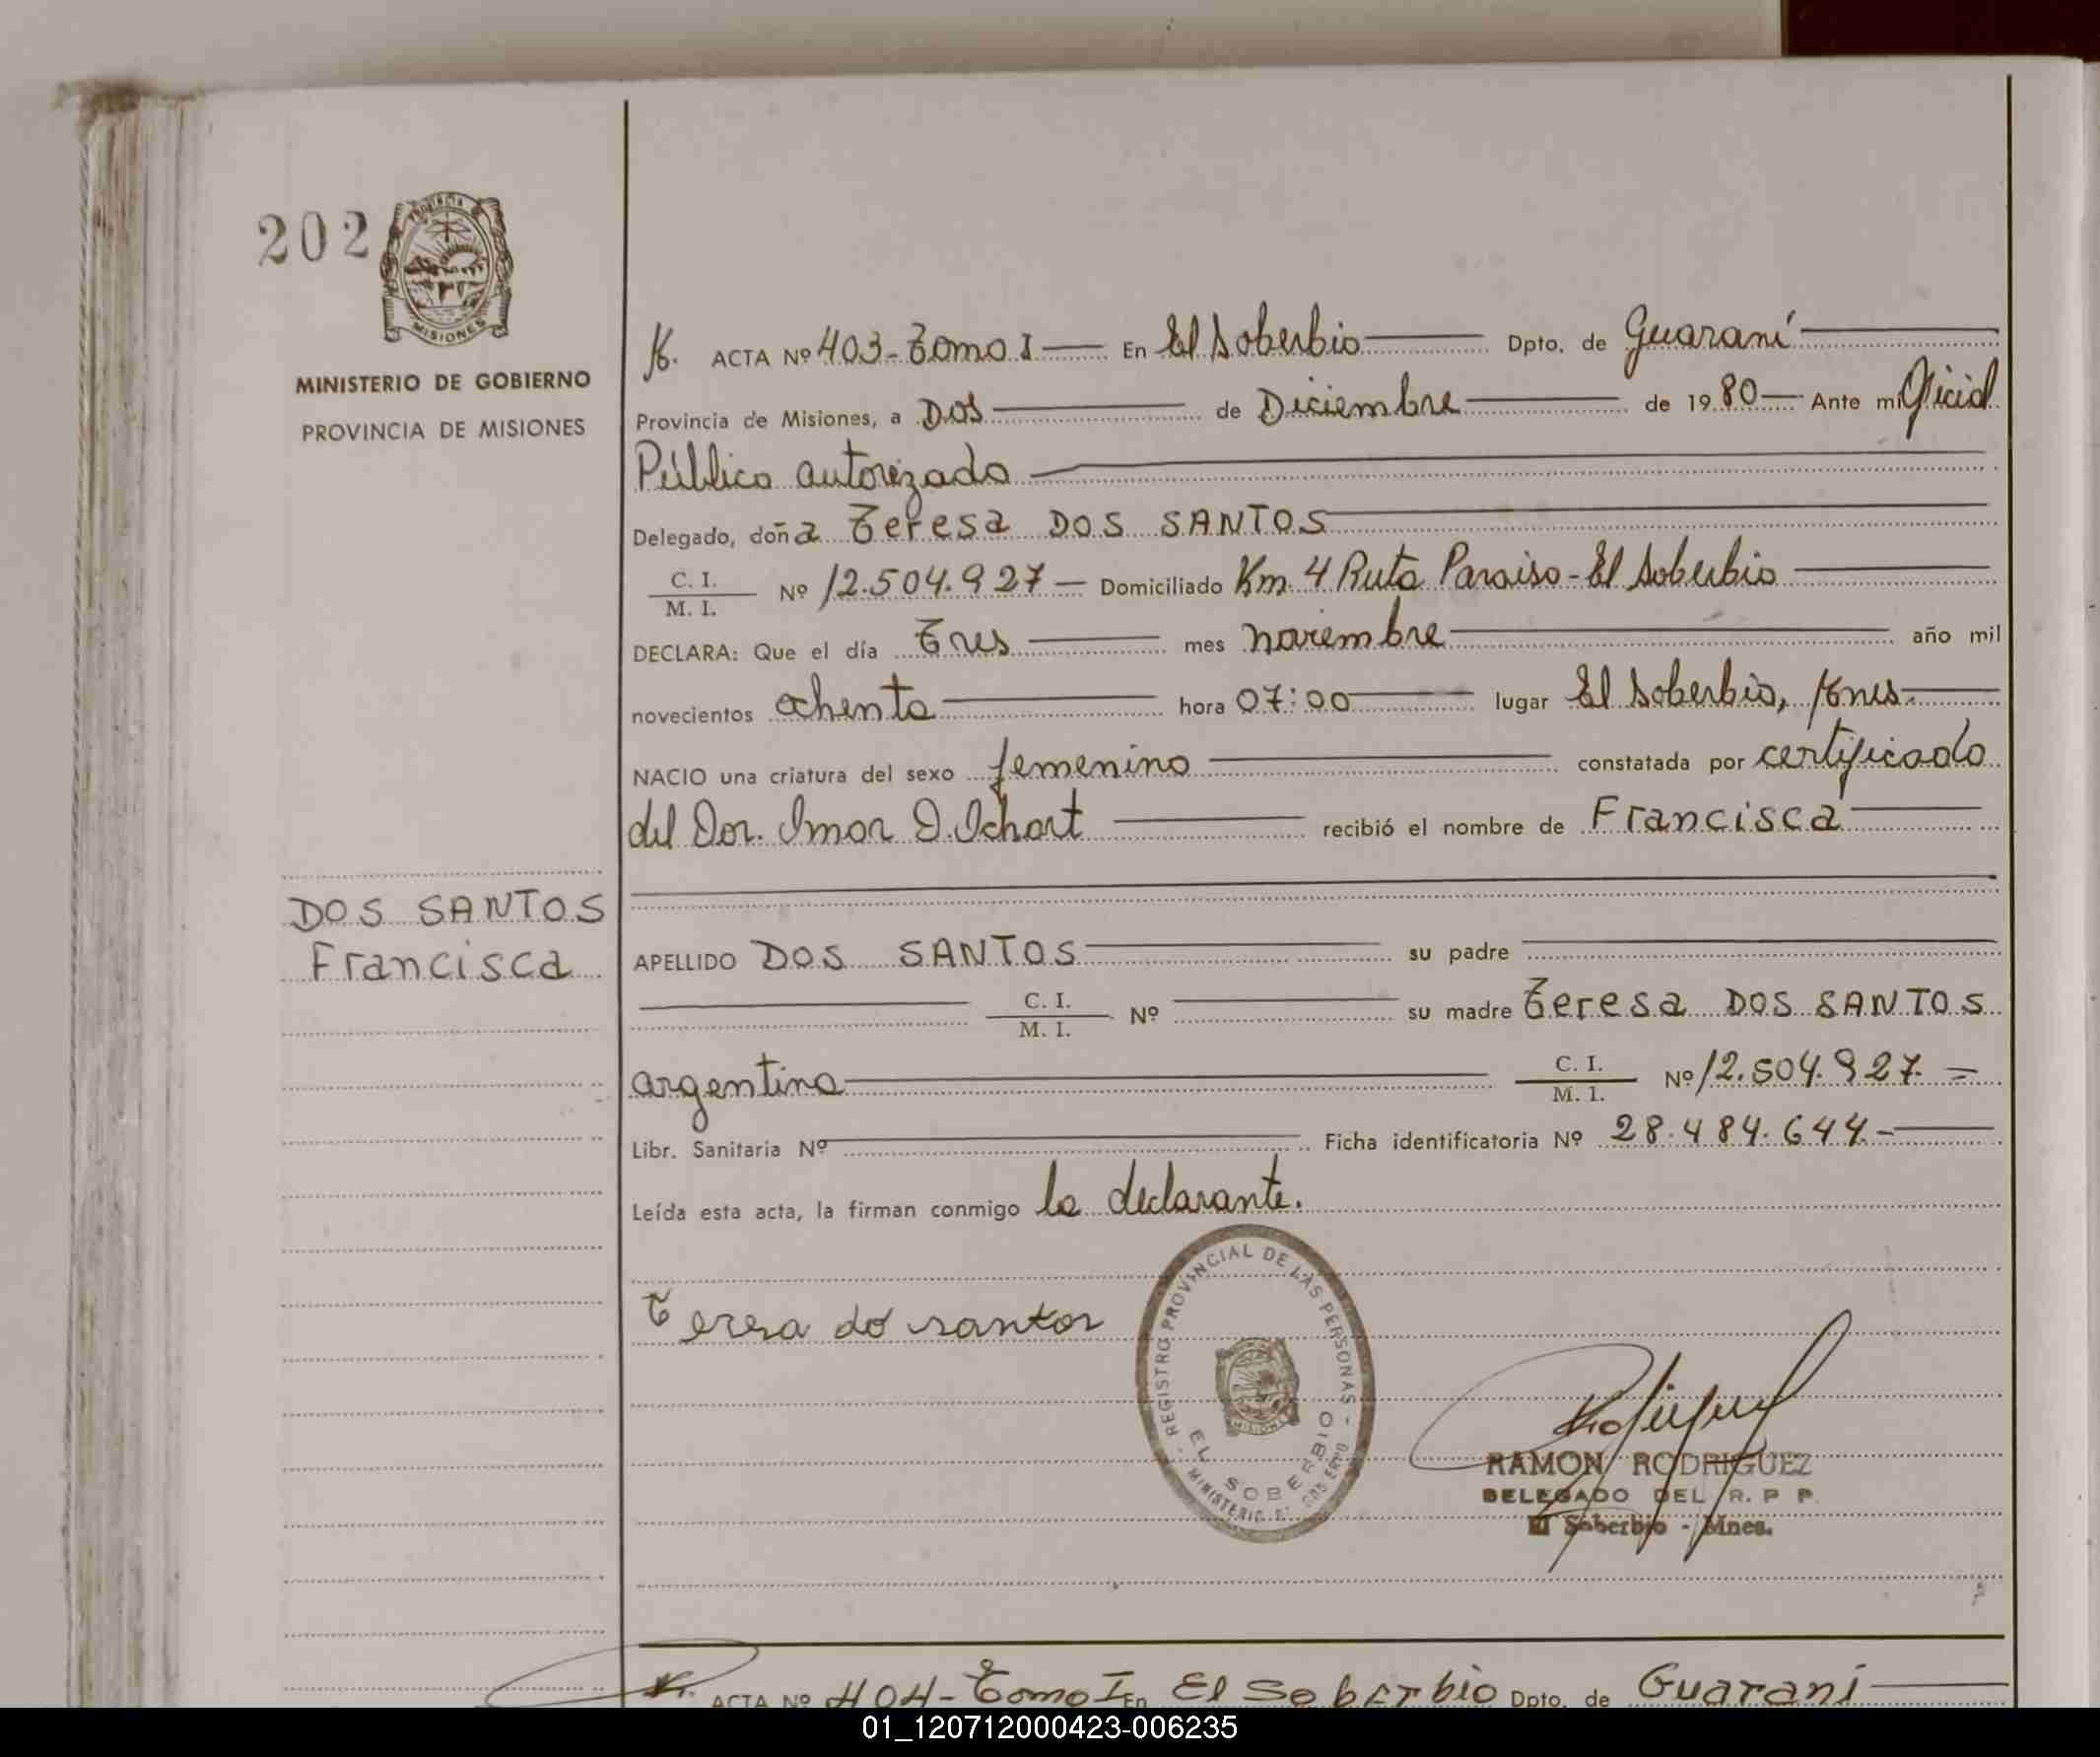 202
PROVINCIA
MISIONES
MINISTERIO DE GOBIERNO
PROVINCIA DE MISIONES
ACTA Nº 403-Tomo I En El Soberbio Dpto. de Guaraní
Provincia de Misiones, a Dos de Diciembre de 1980 Ante mi Oficial
Público autorizado
Delegado, doña Teresa DOS SANTOS
C. I.
M. I.
Nº 12.504.927 Domiciliado Km. 4 Ruta Paraiso-El Soberbio
DECLARA: Que el día Tres mes noviembre año mil
novecientos ochenta hora 07:00 lugar El Soberbio, Mnes.
NACIO una criatura del sexo femenino constatada por certificado
del Dor. Imar D. Ichart recibió el nombre de Francisca
DOS SANTOS
Francisca
APELLIDO DOS SANTOS su padre
C. I.
M. I.
Nº su madre Teresa DOS SANTOS
argentina C. I.
M. I.
Nº 12.504.927
Libr. Sanitaria Nº Ficha identificatoria Nº 28.484.644
Leída esta acta, la firman conmigo la declarante.
Teresa do santos
REGISTRO PROVINCIAL DE LAS PERSONAS
EL SOBERBIO
MINISTERIO DE GOBIERNO
MISIONES
RAMON RODRIGUEZ
DELEGADO DEL R. P P.
El Soberbio - Mnes.
ACTA Nº 404-Tomo I En El Soberbio Dpto. de Guaraní
01_120712000423-006235